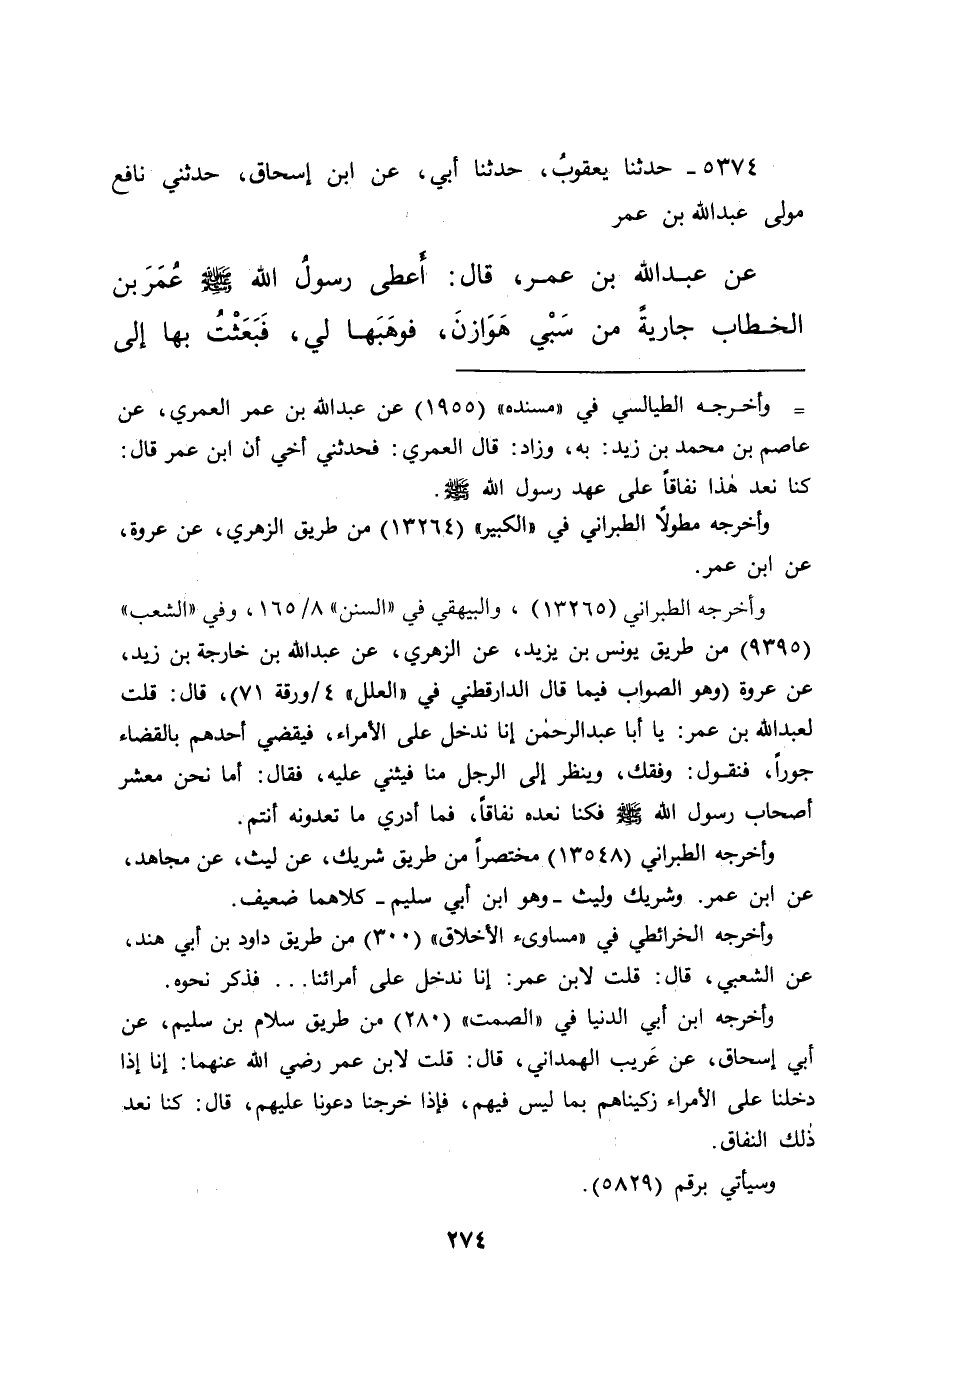 ٥٣٧٤ ـ حدثنا يعقوبُ، حدثنا أبي، عن ابن إسحاق، حدثني نافع
مولى عبدالله بن عمر
عن عبـدالله بن عمـر، قال: أَعطى رسولُ الله ﷺ عُمَرَ بن
الخـطاب جاريةً من سَبْيِ هَوَازنَ، فوهَبَهـا لي، فَبَعَثْتُ بها إلى
= وأخـرجـه الطيالسي في «مسنده» (١٩٥٥) عن عبدالله بن عمر العمري، عن
عاصم بن محمد بن زيد: به، وزاد: قال العمري: فحدثني أخي أن ابن عمر قال:
كنا نعد هٰذا نفاقاً على عهد رسول الله ﷺ.
وأخرجه مطولًا الطبراني في «الكبير» (١٣٢٦٤) من طريق الزهري، عن عروة،
عن ابن عمر.
وأخرجه الطبراني (١٣٢٦٥) ، والبيهقي في «السنن» ٨/ ١٦٥، وفي «الشعب»
(٩٣٩٥) من طريق يونس بن يزيد، عن الزهري، عن عبدالله بن خارجة بن زيد،
عن عروة (وهو الصواب فيما قال الدارقطني في «العلل» ٤/ورقة ٧١)، قال: قلت
لعبدالله بن عمر: يا أبا عبدالرحمٰن إنا ندخل على الأمراء، فيقضي أحدهم بالقضاء
جوراً، فنقـول: وفقك، وينظر إلى الرجل منا فيثني عليه، فقال: أما نحن معشر
أصحاب رسول الله ﷺ فكنا نعده نفاقاً، فما أدري ما تعدونه أنتم.
وأخرجه الطبراني (١٣٥٤٨) مختصراً من طريق شريك، عن ليث، عن مجاهد،
عن ابن عمر. وشريك وليث ـ وهو ابن أبي سليم ـ كلاهما ضعيف.
وأخرجه الخرائطي في «مساوىء الأخلاق» (٣٠٠) من طريق داود بن أبي هند،
عن الشعبي، قال: قلت لابن عمر: إنا ندخل على أمرائنا... فذكر نحوه.
وأخرجه ابن أبي الدنيا في «الصمت» (٢٨٠) من طريق سلام بن سليم، عن
أبي إسحاق، عن عَريب الهمداني، قال: قلت لابن عمر رضي الله عنهما: إنا إذا
دخلنا على الأمراء زكيناهم بما ليس فيهم، فإذا خرجنا دعونا عليهم، قال: كنا نعد
ذٰلك النفاق.
وسيأتي برقم (٥٨٢٩).
٢٧٤